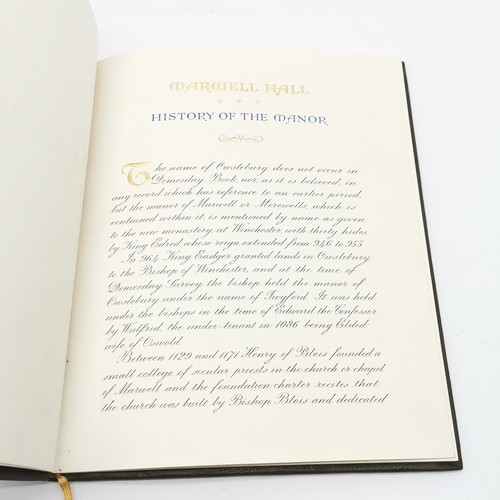 MARWELL HALL
HISTORY OF THE MANOR
The name of Owslebury does not occur in
Domesday Book nor, as it is believed, in
any record which has reference to an earlier period,
but the manor of Marwell or Merewelle which is
contained within it, is mentioned by name as given
to the new monastery at Winchester, with thirty hides,
by King Edred, whose reign extended from 946 to 955
In 964 King Eadger granted lands in Owslebury
to the Bishop of Winchester, and at the time of
Domesday Survey the bishop held the manor of
Owslebury under the name of Twyford. It was held
under the bishops in the time of Edward the Confessor
by Wulfrid, the under-tenant in 1086 being Elded
wife of Oswold.
Between 1129 and 1171 Henry of Blois founded a
small college of secular priests in the church or chapel
of Marwell and the foundation charter recites that
the church was built by Bishop Blois and dedicated